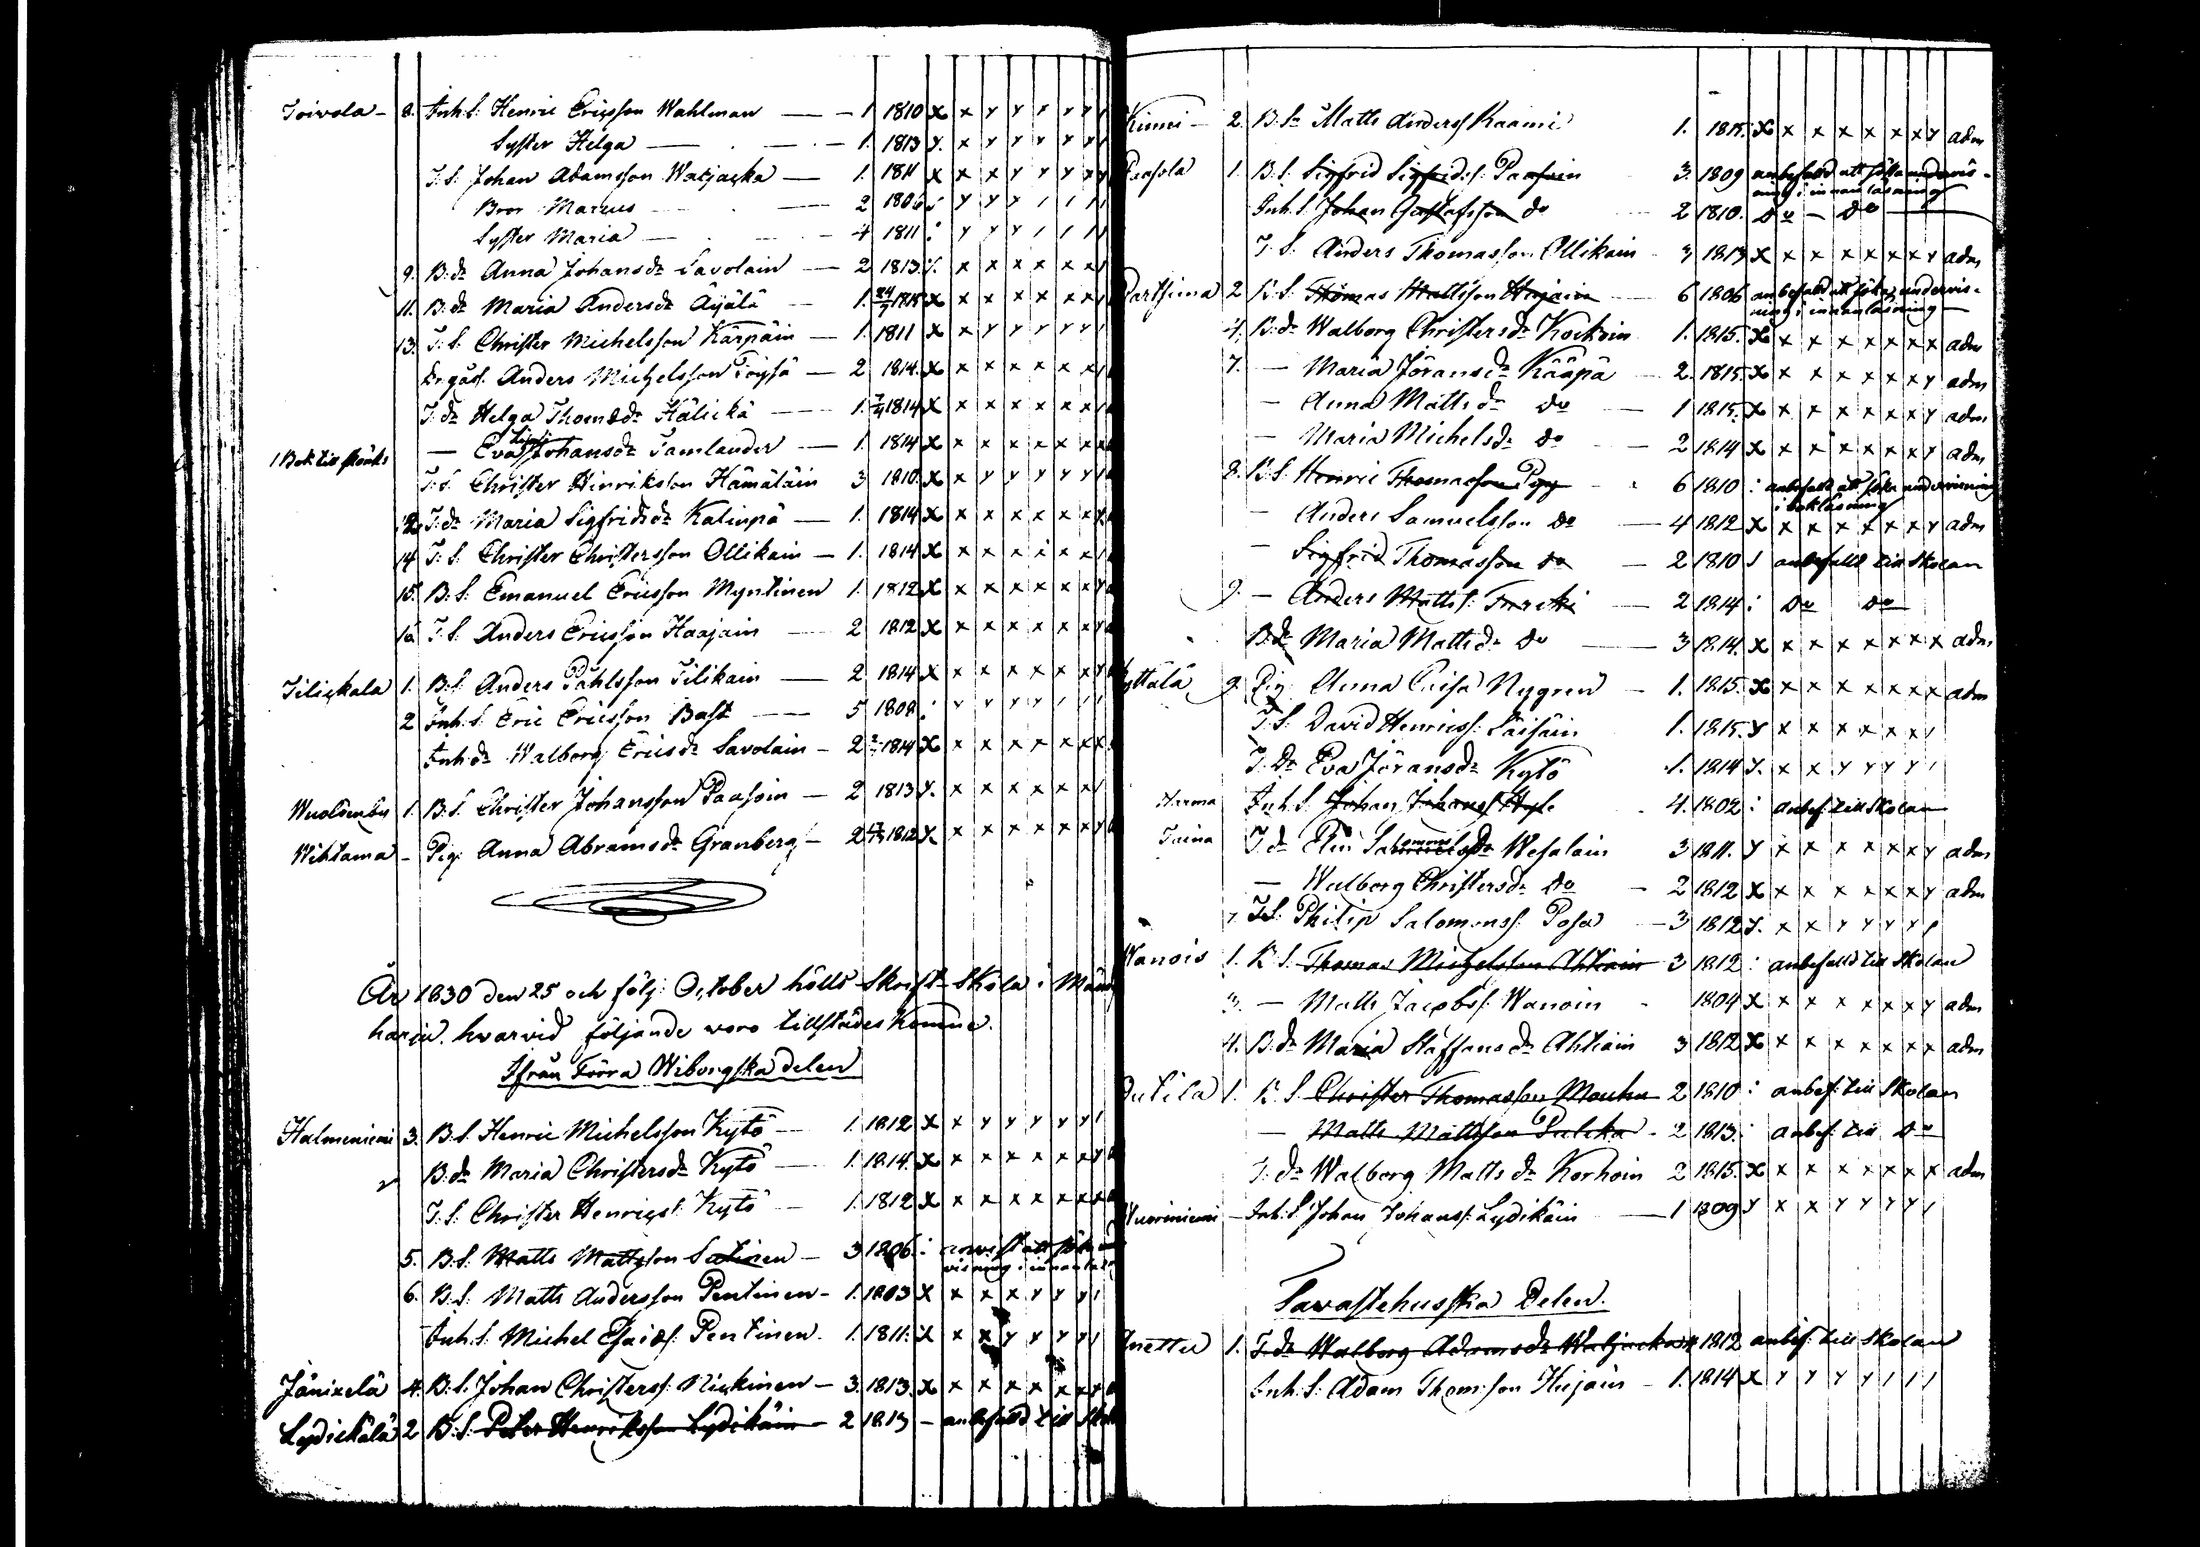 Toivola - 8. Inh: S: Henric Ericsson Wahlman — 1. 1810 X x y y y y y
Syster Helga — 1. 1813 y. x y y y y y
T: S: Johan Adamsson Watjacka — 1. 1811 X x x y y y y
Bror Marcus 2 1806
Syster Maria — 4 1811
9. B: dr Anna Johansdr Savolain — 2 1813 x x x x x x
11. B: dr Maria Andersdr Äyälä — 1. 1815 X x x x x x x
13. T: S: Christer Michelsson Kärpäin — 1. 1811 X x y y y y y
Anders Michelsson Töysä — 2 1814. X x x x x x x
T: dr Helga Thomsdr Kälickä — 1. 1814 X x x x x x x
— Eva Johansdr Tamlander — 1. 1814 X x x x x x x
T: S: Christer Hinriksson Hämäläin 3 1810. X x y y y y y
T: dr Maria Sigfridsdr Kalinpä — 1. 1814 X x x x x x x
14 T: S: Christer Christersson Ollikain — 1. 1814 X x x x i x x
15. B: S: Emanuel Ericsson Myntinen 1. 1812 X x x x x x x
16. T: S: Anders Ericsson Haajain — 2 1812 X x x x x x x
Tilickala 1. B: S: Anders Påhlsson Tilikain — 2 1814 X x x x x x x
2 Inh: S: Eric Ericsson Bast — 5 1808
Inh: dr Walborg Ericsdr Savolain — 2 1814 X x x x x x x
1. B: S: Christer Johansson Paasoin — 2 1813 y. x x x x x
Wihtama - Pig: Anna Abramsdr Granberg — 2 1812 X x x x x x x
År 1830 den 25 och följ: October hölts Skrift-Skola i Män
harju. hvarvid följande voro tillstädes komne.
Ifrån Förra Wiborgska delen
Halmeniemi 3. B: S. Henric Michelsson Kytö — 1. 1812 X x y y y y y
B: dr Maria Christersdr Kytö — 1. 1814. X x x x x x x
T: S: Christer Henrics: Kytö — 1. 1812 X x x x x x x
5. B: S. Matts Mattsson — 3 1806. i
6. B: S. Matts Andersson Pentinen - 1. 1803 X x x x y y y
Inh: S: Michel Esaias: Pentinen. 1. 1811. X x x y y y y
Jänixelä 4. B: S. Johan Christers: Nickinen — 3. 1813. X x x x x x x
Lydickälä 2 B: S. Peter Henriksson Lydikäin — 2 1813 — anbefalld till
Kinni - 2. B: S. Matts Anders: Kaami 1. 1815. X x x x x x x y adm
Paasola 1. B: S. Sigfrid Sigfrids: Paasoin 3. 1809 anbefalld att söka undervis-
ning i innanläsning
Inh: S. Johan Gustafsson do 2 1810. do — do
T: S. Anders Thomasson Ollikain 3 1813 X x x x x x x y adm
Partsima 2 B: S. Thomas Mattsson Hujain 6 1806 anbefalld att söka undervis-
ning i innanläsning
4. B: dr Walborg Christersdr Kockoin 1. 1815. X x x x x x x x adm
7. — Maria Jöransdr Kääpä — 2. 1815. X x x x x x x y adm
— Anna Mattsdr do — 1 1815. X x x x x x x y adm
— Maria Michelsdr do — 2 1814 X x x x x x x y adm
8. B: S. Henric Thomasson 6 1810 : anbefalld att söka undervisning
i boklåsning
— Anders Samuelsson do — 4 1812 X x x x x x x y adm
— Sigfrid Thomasson do — 2 1810 anbefalld till Skolan
9. — Anders Matts: — 2 1814 : do do
B: dr Maria Mattsdr do — 3 1814. X x x x x x x x adm
9 Pig. Anna Caisa Nygren — 1. 1815. X x x x x x x x adm
T: S: David Henrics: Säisäin 1. 1815. y x x x x x x
T: dr Eva Jöransdr Kytö 1. 1814 y. x x y y y y
Inh: S. Johan 4. 1802 : anbef: till Skolan
T: dr Elin Salomonsdr Wesalain 3 1811. y x x x x x x y adm
— Walborg Christersdr do — 2 1812 X x x x x x x y adm
T: S: Philip Salomons: Posa — 3 1812 y. x x y y y y
Wanois 1. B: S: Thomas Michelsson Ahtiain 3 1812 : anbefalld till Skolan
3. — Matts Jacobs: Wanoin 1804 X x x x x x x y adm
4. B: dr Maria Staffansdr Ahtiain 3 1812 X x x x x x x x adm
Outila 1. B: S. Christer Thomasson Mauhu 2 1810 : anbef: till Skolan
— Matts Mattsson Pulcka - 2 1813 : anbef: till do
T: dr Walborg Mattsdr Korhoin 2 1815. X x x x x x x x adm
Wuoriniemi - Inh: S. Johan Johans: Lydikäin — 1 1809 y x x y y y y
Tavastehusska Delen.
1. T: dr Walborg Adamsdr Watjacka 1812 anbef: till Skolan
Inh: S: Adam Thomsson Hujain — 1. 1814 X y y y y